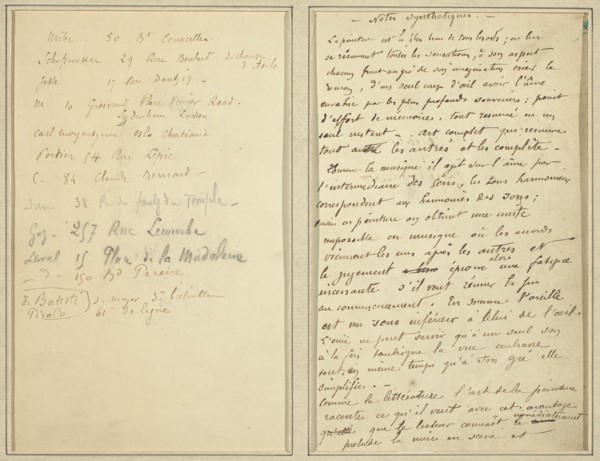 Uribe 50 Bd Courcelles
Schuffenecker 29 Rue Boulard
17 Rue
M 10 Road.
Sydenham London
carl
Portier 54 Rue Lépic
C. 84 Claude Bernard -
38 R du faubg du Temple -
257 Rue Lecourbe
Laval 15 Place de la Madeleine
- d - 150 Bd Pereire
major
61e de ligne
- Notes Synthétiques. -
La peinture est le plus beau de tous les arts; en lui
se résument toutes les sensations, à son aspect
chacun peut au gré de son imagination créer le
roman, d'un seul coup d'œil avoir l'âme
envahie par les plus profonds souvenirs; point
d'effort de mémoire, tout résumé en un
seul instant - . Art complet qui résume
tout les autres et les complète. -
Comme la musique il agit sur l'âme par
l'intermédiaire des sens, les tons harmonieux
correspondent aux harmonies des sons;
mais en peinture on obtient une unité
impossible en musique où les accords
viennent les uns après les autres et
le jugement éprouve alors une fatigue
incessante s'il veut réunir la fin
au commencement. En somme l'oreille
est un sens inférieur à celui de l'œil.
L'ouïe ne peut servir qu'à un seul son
à la fois tandisque la vue embrasse
tout, en même temps qu'à son gré elle
simplifie. -
Comme la littérature l'art de la peinture
raconte ce qu'il veut avec cet avantage
que le lecteur connaît immédiatement
le prélude la mise en scène et